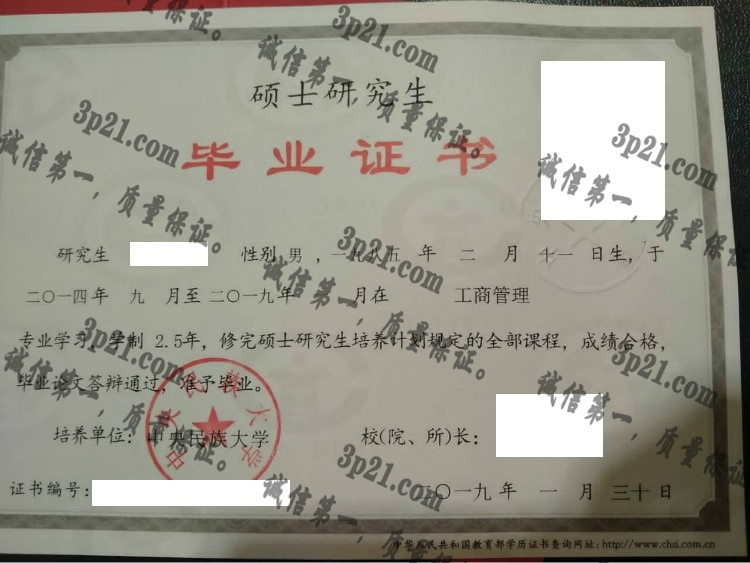 硕士研究生
毕业证书
研究生 性别 男，一九八五年 二 月 十一 日生，于
二〇一四年 九 月至二〇一九年 月在 工商管理
专业学习，学制 2.5年，修完硕士研究生培养计划规定的全部课程，成绩合格，
毕业论文答辩通过，准予毕业。
培养单位：中央民族大学 校(院、所)长：
证书编号： 二〇一九年 一 月 三十日
中华人民共和国教育部学历证书查询网址：http://www.chsi.com.cn
中央民族大学
3p21.com
诚信第一，质量保证。
3p21.com
诚信第一，质量保证。
3p21.com
诚信第一，质量保证。
3p21.com
诚信第一，质量保证。
3p21.com
诚信第一，质量保证。
3p21.com
诚信第一，质量保证。
3p21.com
诚信第一，质量保证。
3p21.com
诚信第一，质量保证。